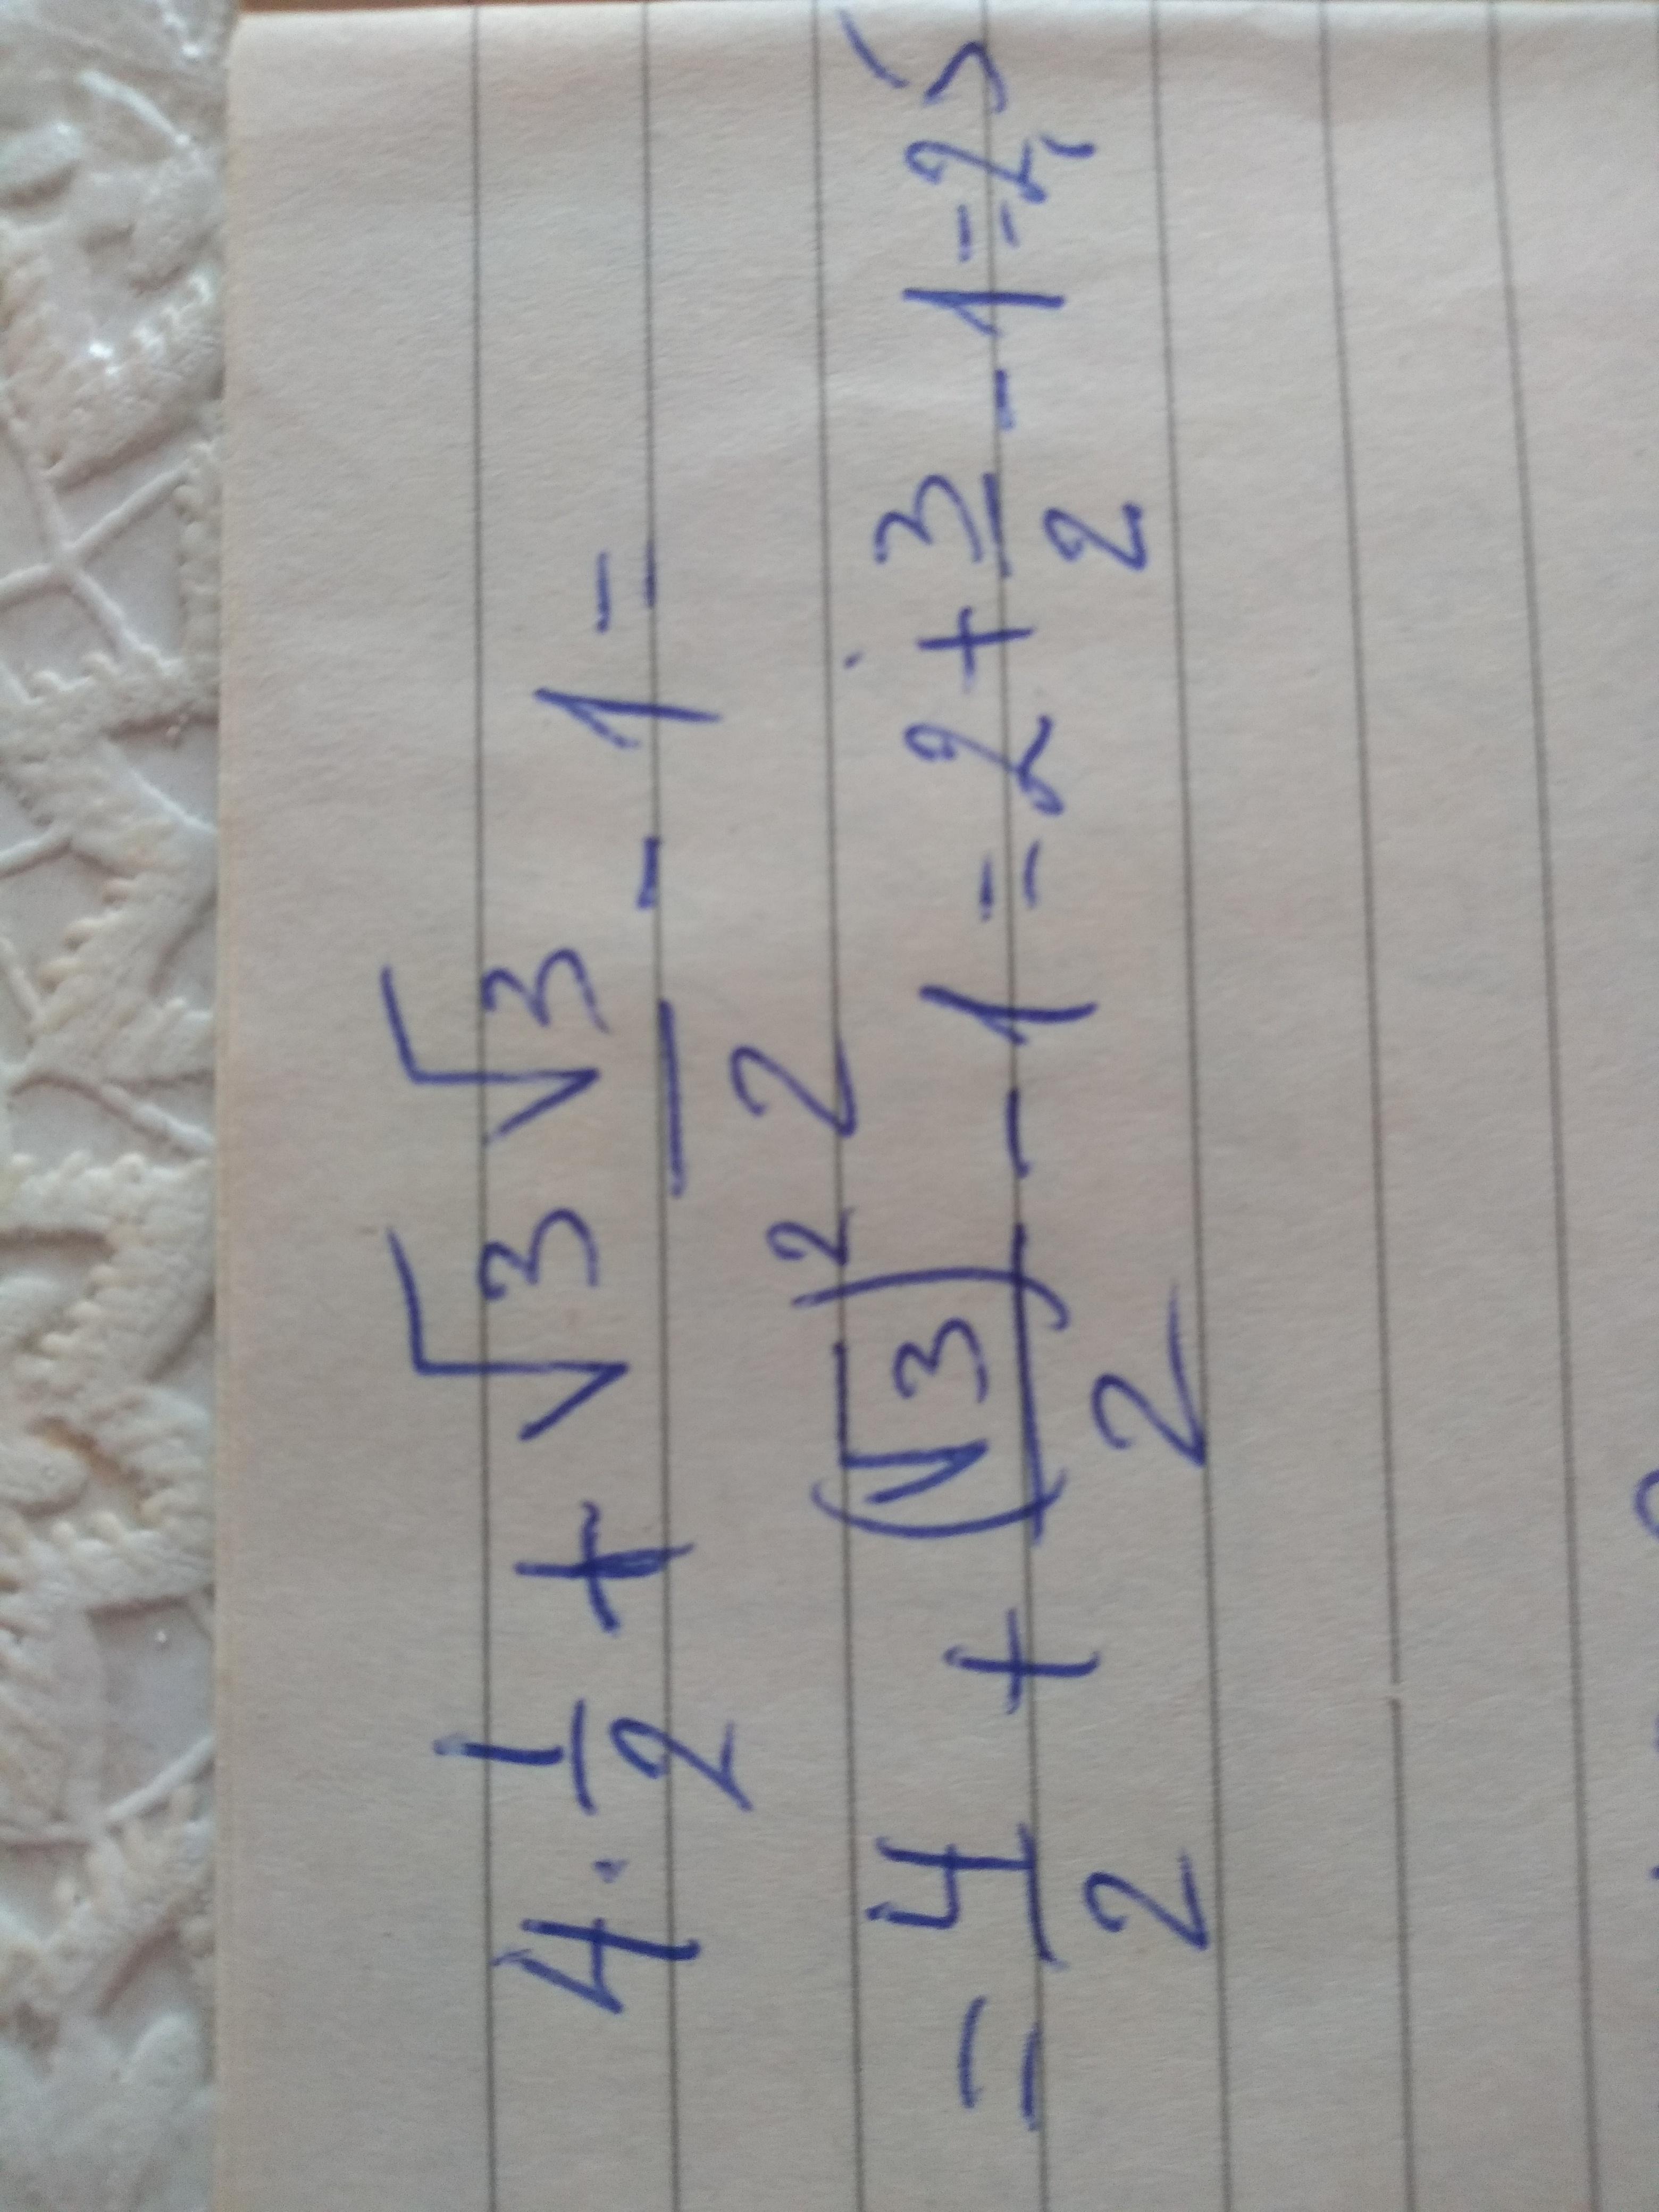 4 · 1/2 + √3 √3/2 - 1 =
= 4/2 + (√3)²/2 - 1 = 2 + 3/2 - 1 = 2,5